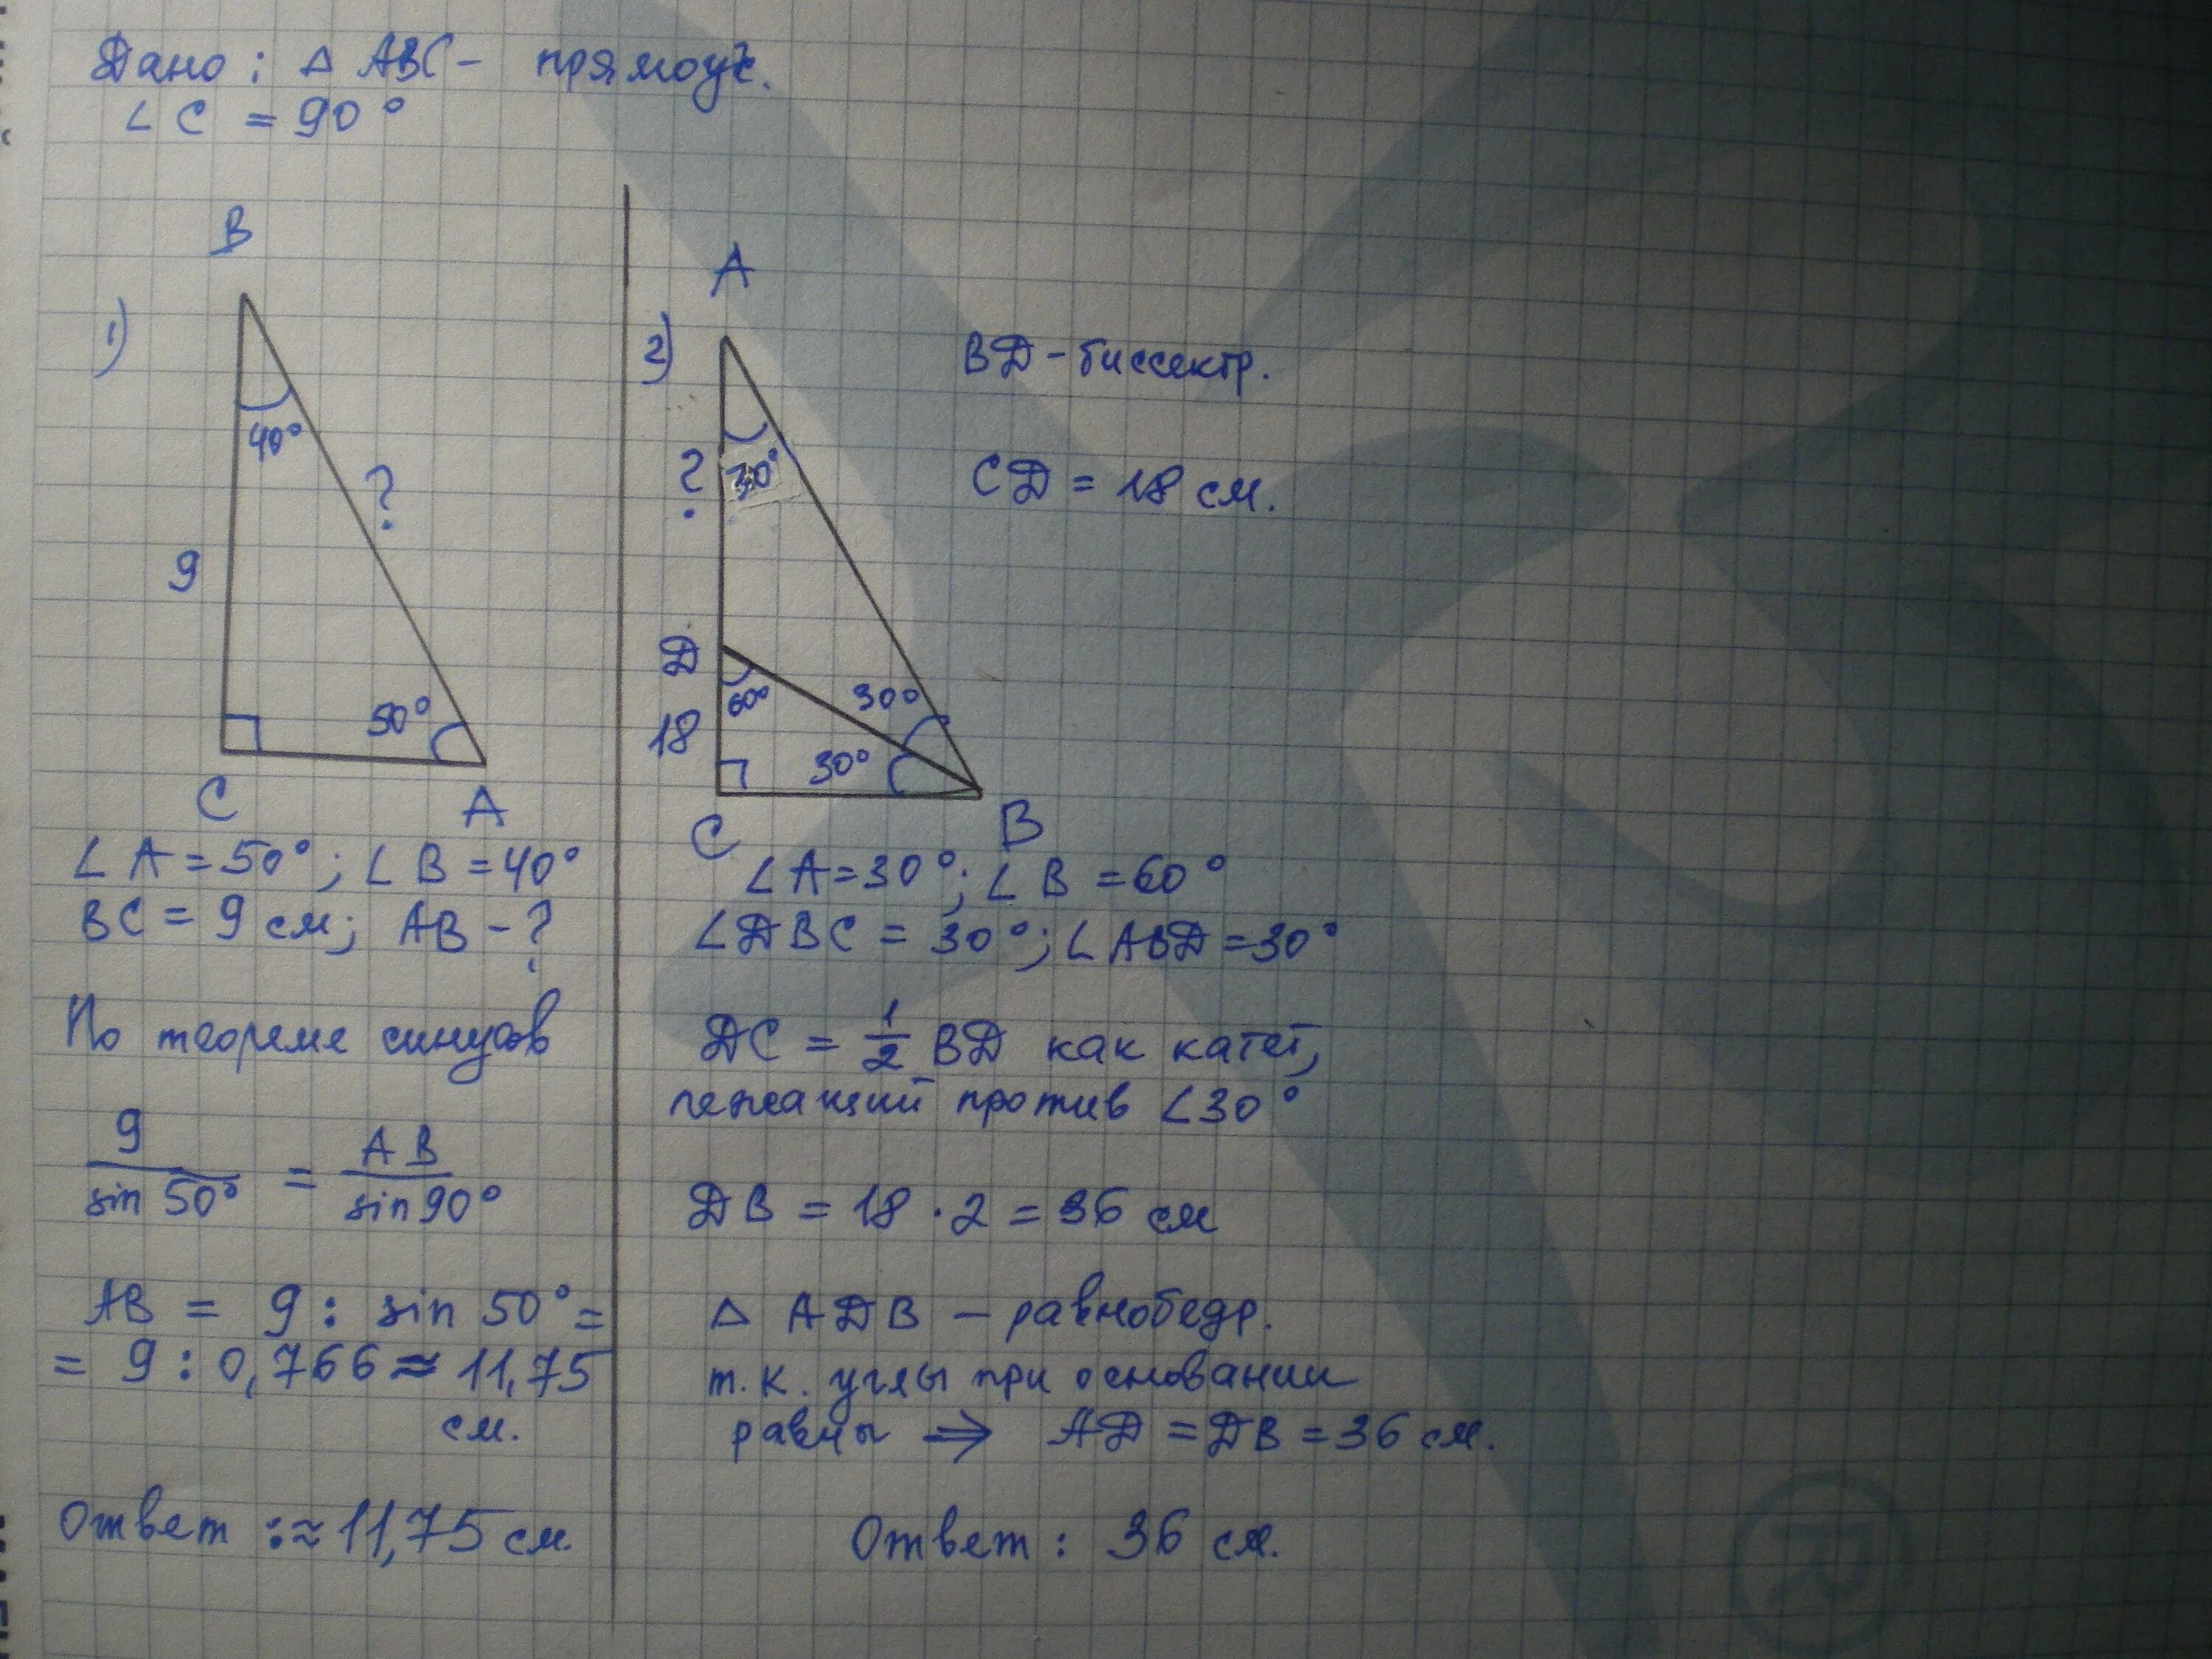 Дано: △ ABC - прямоуг.
∠ C = 90°
1)
B
40°
?
9
50°
C
A
∠ A = 50°; ∠ B = 40°
BC = 9 см; AB - ?
По теореме синусов
9 / sin 50° = AB / sin 90°
AB = 9 : sin 50° =
= 9 : 0,766 ≈ 11,75
см.
Ответ : ≈ 11,75 см.
2)
A
BD - биссектр.
30°
?
CD = 18 см.
D
60°
30°
18
30°
C
B
∠ A = 30°; ∠ B = 60°
∠ DBC = 30°; ∠ ABD = 30°
DC = 1/2 BD как катет,
лежащий против ∠ 30°
DB = 18 · 2 = 36 см
△ ADB – равнобедр.
т.к. углы при основании
равны ⇒ AD = DB = 36 см.
Ответ : 36 см.
R